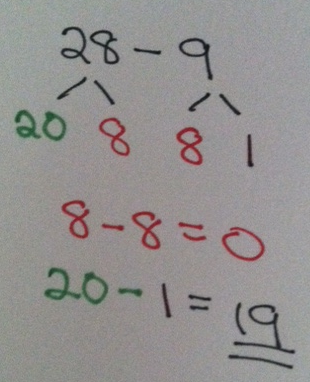 28 - 9
20 8 8 1
8 - 8 = 0
20 - 1 = 19